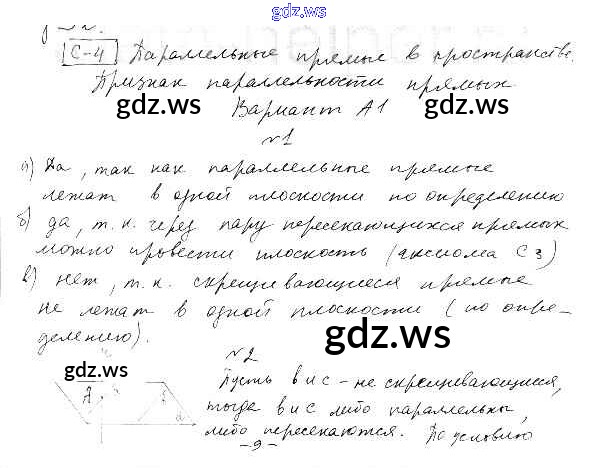 gdz.ws
С-4 Параллельные прямые в пространстве.
Признак параллельности прямых
gdz.ws gdz.ws
Вариант А1
№1
а) Да, так как параллельные прямые
лежат в одной плоскости по определению
б) да, т.к. через пару пересекающихся прямых
можно провести плоскость (аксиома С3)
в) нет, т.к. скрещивающиеся прямые
не лежат в одной плоскости (по опре-
делению).
gdz.ws
№2
gdz.ws
Пусть в и с - не скрещивающиеся,
тогда в и с либо параллельны,
либо пересекаются. По условию
А в а
-9-